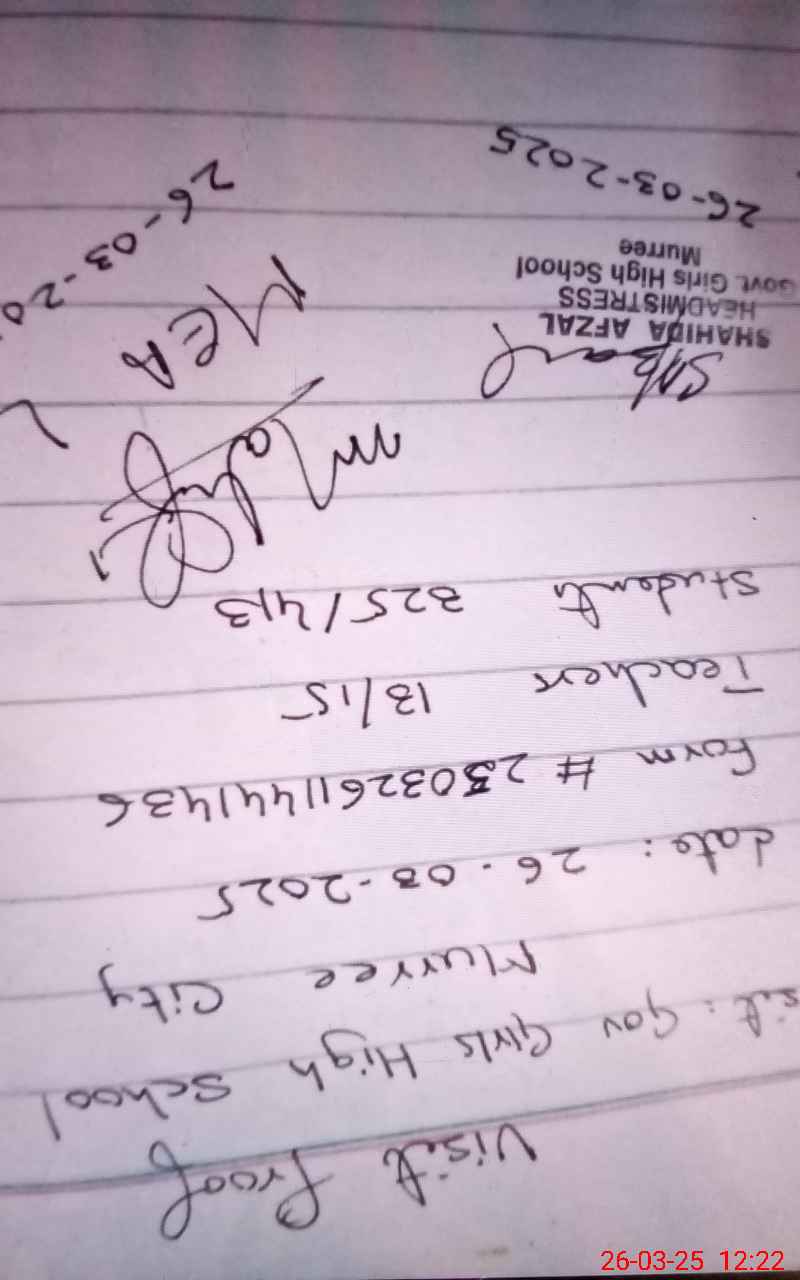 Visit Proof
sit: Gov Girls High School
Murree City
date: 26.03-2025
Form # 23032611441436
Teachers 13/15
Students 325/413
SHAHIDA AFZAL
HEADMISTRESS
Govt. Girls High School
Murree
26-03-2025
MEA
26-03-20
26-03-25 12:22